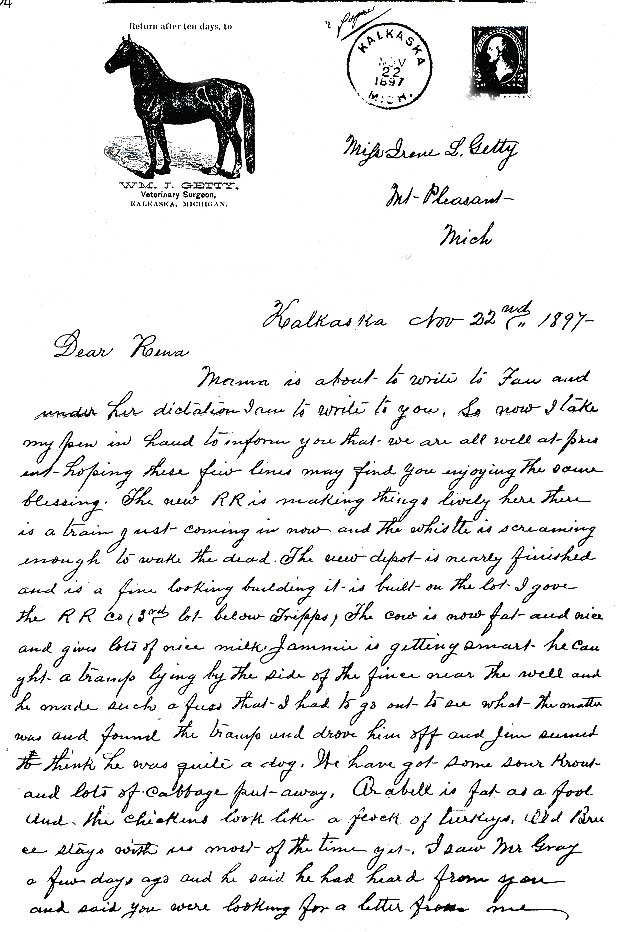 94
Return after ten days, to
KALKASKA
NOV
22
1897
MICH.
WM. J. GETTY,
Veterinary Surgeon,
KALKASKA, MICHIGAN.
Miss Irene L. Getty
Mt Pleasant
Mich
Kalkaska Nov 22nd 1897
Dear Rena
Mama is about to write to Fan and
under her dictation I am to write to you. So now I take
my pen in hand to inform you that we are all well at pres
ent hoping these few lines may find you enjoying the same
blessing. The new RR is making things lively here there
is a train just coming in now and the whistle is screaming
enough to wake the dead. The new depot is nearly finished
and is a fine looking building it is built on the lot I gave
the RR Co, (3rd lot below Tripps) The cow is now fat and nice
and gives lots of nice milk. Jammie is getting smart he cau
ght a tramp lying by the side of the fence near the well and
he made such a fuss that I had to go out to see what the matter
was and found the tramp and drove him off and Jim seemed
to think he was quite a dog. We have got some sour Krout
and lots of cabbage put away. Arabell is fat as a fool
and the chickins look like a flock of turkeys. Old Bru
ce stays with us most of the time yet. I saw Mr Gray
a few days ago and he said he had heard from you
and said you were looking for a letter from me